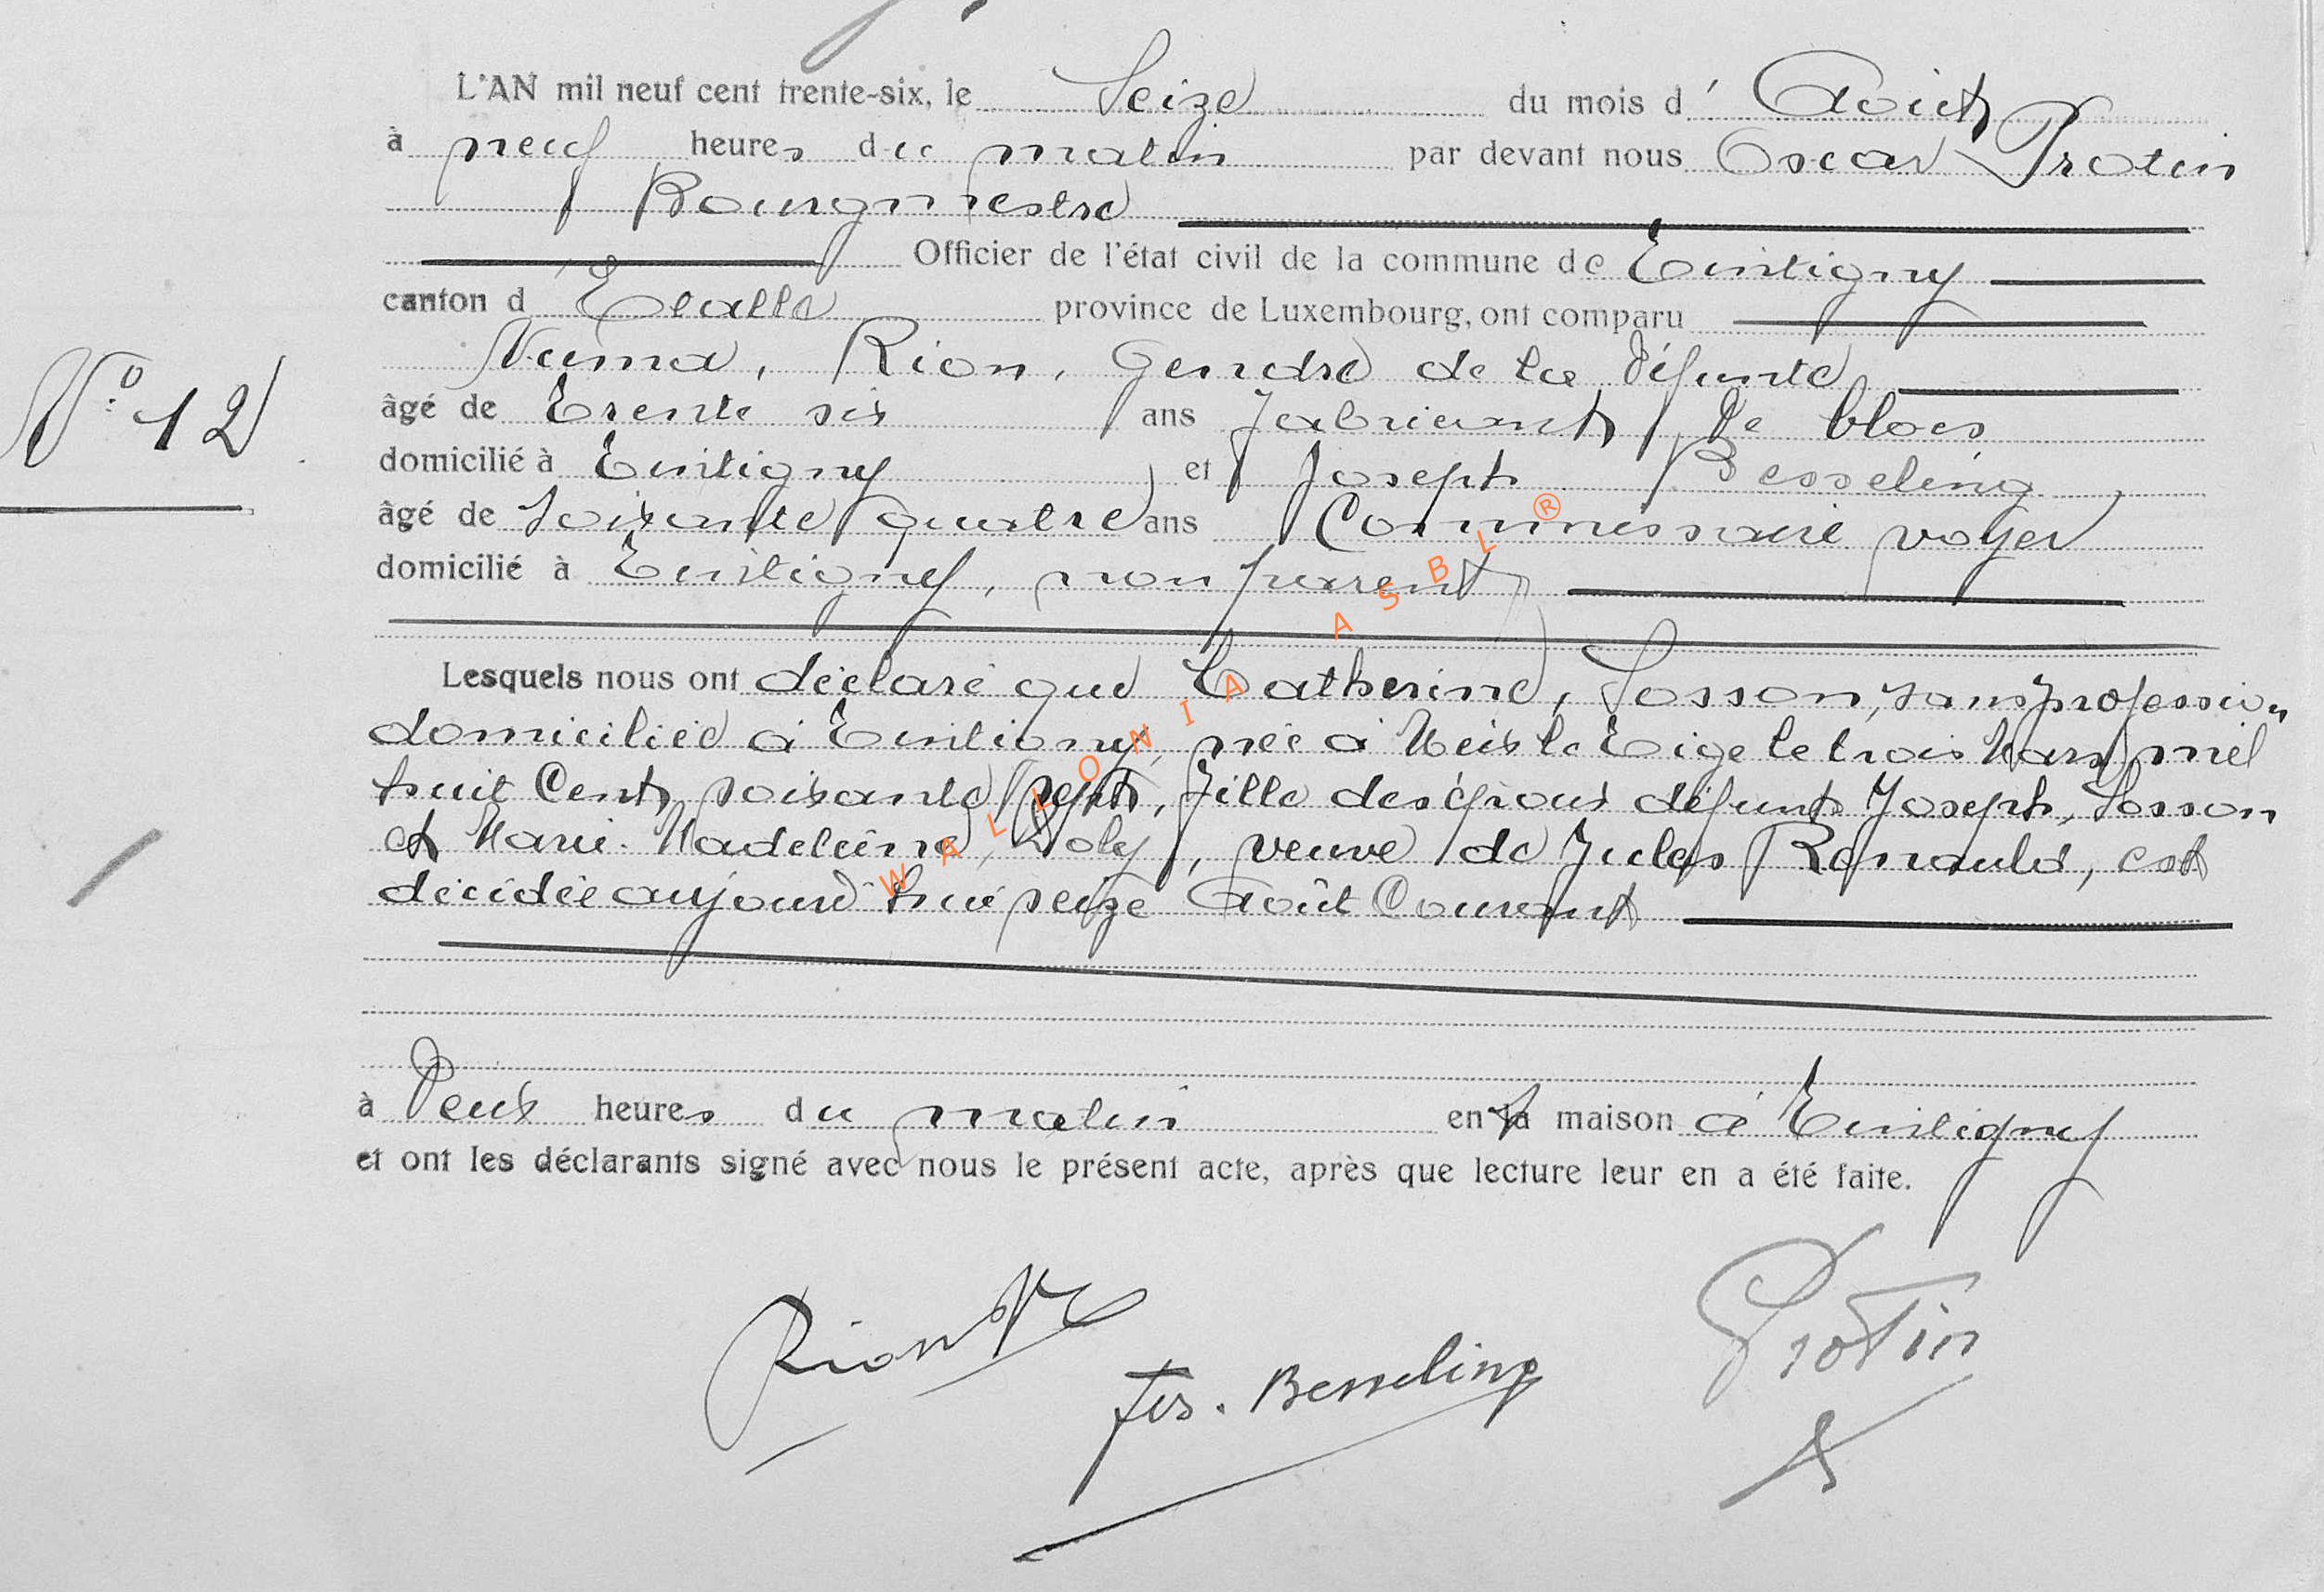 L'AN mil neuf cent trente-six, le Seize du mois d' Août
à neuf heures du matin par devant nous Oscar Protin
Bourgmestre
Officier de l'état civil de la commune de Tintigny
canton d' Etalle province de Luxembourg, ont comparu
Numa, Rion, Gendre de la défunte
N° 12
âgé de Trente six ans fabricant de blocs
domicilié à Tintigny et Joseph Besseling
âgé de soixante quatre ans Commissaire voyer
domicilié à Tintigny, non parent
Lesquels nous ont déclaré que Catherine, Sosson, sans profession
domiciliée à Tintigny, née à Meix le Tige le trois Mars mil
huit Cent soixante sept, fille des époux défunts Joseph, Sosson
et Marie-Madeleine, Doly, veuve de Jules Renauld, est
décédée aujourd'hui seize Août Courant
à Deux heures du matin en sa maison à Tintigny
et ont les déclarants signé avec nous le présent acte, après que lecture leur en a été faite.
Rion N
Jos. Besseling
Protin
WALLONIA ASBL ®